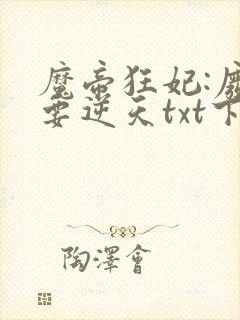 魔帝狂妃:
要逆天txt下
陶澤會